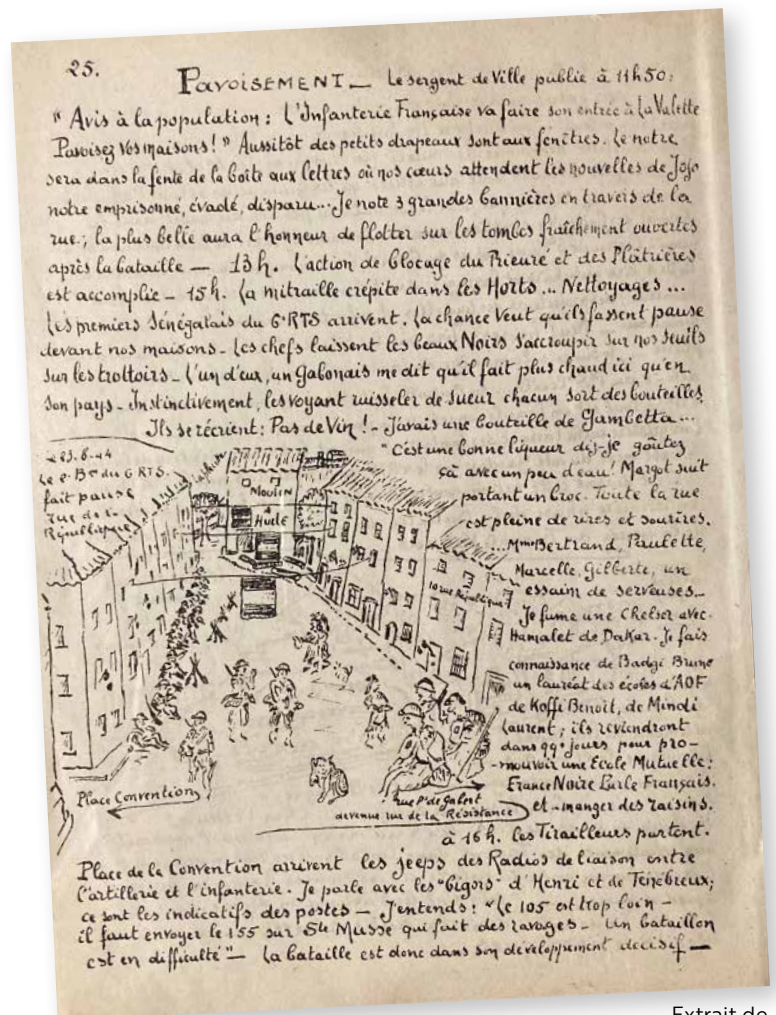 25.
PAVOISEMENT — Le sergent de Ville publie à 11h50:
" Avis à la population : L'Infanterie Française va faire son entrée à La Valette
Pavoisez vos maisons ! " Aussitôt des petits drapeaux sont aux fenêtres. Le notre
sera dans la fente de la boîte aux lettres où nos cœurs attendent les nouvelles de Jojo
notre emprisonné, évadé, disparu... Je note 3 grandes bannières en travers de la
rue ; la plus belle aura l'honneur de flotter sur les tombes fraîchement ouvertes
après la bataille — 13h. L'action de blocage du Prieuré et des Plâtrières
est accomplie — 15h. La mitraille crépite dans les Horts ... Nettoyages ...
Les premiers Sénégalais du 6°RTS arrivent. La chance veut qu'ils fassent pause
devant nos maisons — Les chefs laissent les beaux Noirs s'accroupir sur nos seuils
sur les trottoirs — L'un d'eux, un Gabonais me dit qu'il fait plus chaud ici qu'en
son pays — Instinctivement, les voyant ruisseler de sueur chacun sort des bouteilles
Ils se récrient : Pas de Vin ! — J'avais une bouteille de Gambetta ...
"C'est une bonne liqueur dis-je goûtez
çà avec un peu d'eau! Margot suit
portant un broc. Toute la rue
est pleine de rires et sourires.
... Mme Bertrand, Paulette,
Marcelle, Gilberte, un
essaim de serveuses —
Je fume une Chelsea avec
Hamalet de Dakar. Je fais
connaissance de Badgi Bruno
un lauréat des écoles d'AOF
de Koffi Benoît, de Mindi
Laurent ; ils reviendront
dans 99 jours pour pro-
-mouvoir une Ecole Mutuelle :
France Noire Parle Français.
et — manger des raisins.
à 16h. les Tirailleurs partent.
Le 2e Bon du 6 RTS
fait pause
rue de la
République
MOULIN
A
HUILE
10 rue République
Place Convention
rue Pl de Gabert
devenue rue de la Résistance
Place de la Convention arrivent les jeeps des Radios de liaison entre
l'artillerie et l'infanterie. Je parle avec les "bigors" d'Henri et de Tenebreux;
ce sont les indicatifs des postes — J'entends : "Le 105 est trop loin —
il faut envoyer le 155 sur Ste Musse qui fait des ravages — Un bataillon
est en difficulté" — La bataille est donc dans son développement décisif —
Extrait de